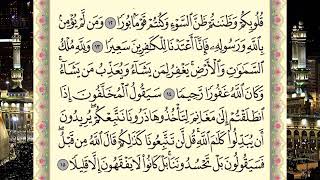 قُلُوبِكُمْ وَظَنَنتُمْ ظَنَّ ٱلسَّوْءِ وَكُنتُمْ قَوْمًۢا بُورًا ١٢ وَمَن لَّمْ يُؤْمِنۢ
بِٱللَّهِ وَرَسُولِهِۦ فَإِنَّآ أَعْتَدْنَا لِلْكَٰفِرِينَ سَعِيرًا ١٣ وَلِلَّهِ مُلْكُ
ٱلسَّمَٰوَٰتِ وَٱلْأَرْضِ يَغْفِرُ لِمَن يَشَآءُ وَيُعَذِّبُ مَن يَشَآءُ
وَكَانَ ٱللَّهُ غَفُورًا رَّحِيمًا ١٤ سَيَقُولُ ٱلْمُخَلَّفُونَ إِذَا
ٱنطَلَقْتُمْ إِلَىٰ مَغَانِمَ لِتَأْخُذُوهَا ذَرُونَا نَتَّبِعْكُمْ يُرِيدُونَ
أَن يُبَدِّلُوا۟ كَلَٰمَ ٱللَّهِ قُل لَّن تَتَّبِعُونَا كَذَٰلِكُمْ قَالَ ٱللَّهُ مِن قَبْلُ
فَسَيَقُولُونَ بَلْ تَحْسُدُونَنَا بَلْ كَانُوا۟ لَا يَفْقَهُونَ إِلَّا قَلِيلًا ١٥